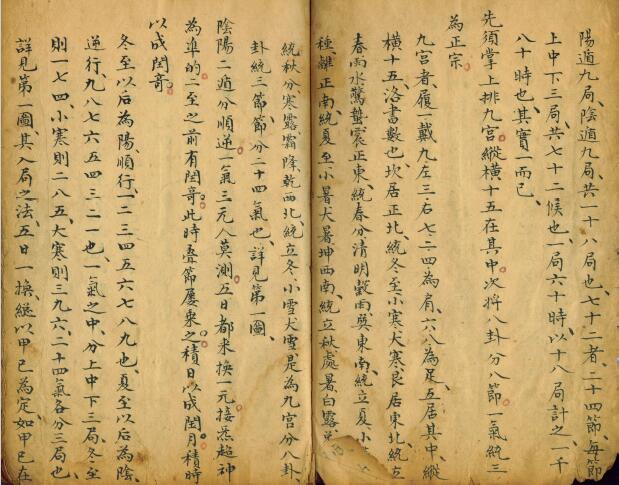 陽遁九局、陰遁九局、共一十八局也、七十二者、二十四節、每節
上中下三局、共七十二候也、一局六十時、以十八局計之、一千
八十時也、其實一而已、
先須掌上排九宮、縱橫十五在其中、次將八卦分八節、一氣統三
為正宗、
九宮者、履一戴九、左三右七、二四為肩、六八為足、五居其中、縱
橫十五、洛書數也、坎居正北、統冬至小寒大寒、艮居東北、統立
春雨水驚蟄、震正東、統春分清明穀雨、巽東南、統立夏小
種、離正南、統夏至小暑大暑、坤西南、統立秋處暑白露、
統秋分寒露霜降、乾西北、統立冬小雪大雪、是為九宮分八卦、
卦統三節、節分二十四氣也、詳見第一圖、
陰陽二遁分順逆、一氣三元人莫測、五日都來換一元、接氣超神
為準的、二至之前有閏奇、此時疊節屢乘之、積日以成閏月、積時
以成閏奇。
冬至以后為陽、順行、一二三四五六七八九也、夏至以后為陰、
逆行、九八七六五四三二一也、一氣之中、分上中下三局、冬至
則一七四、小寒則二八五、大寒則三九六、二十四氣各分三局也、
詳見第一圖、其入局之法、五日一換、總以甲己為定、如甲己在